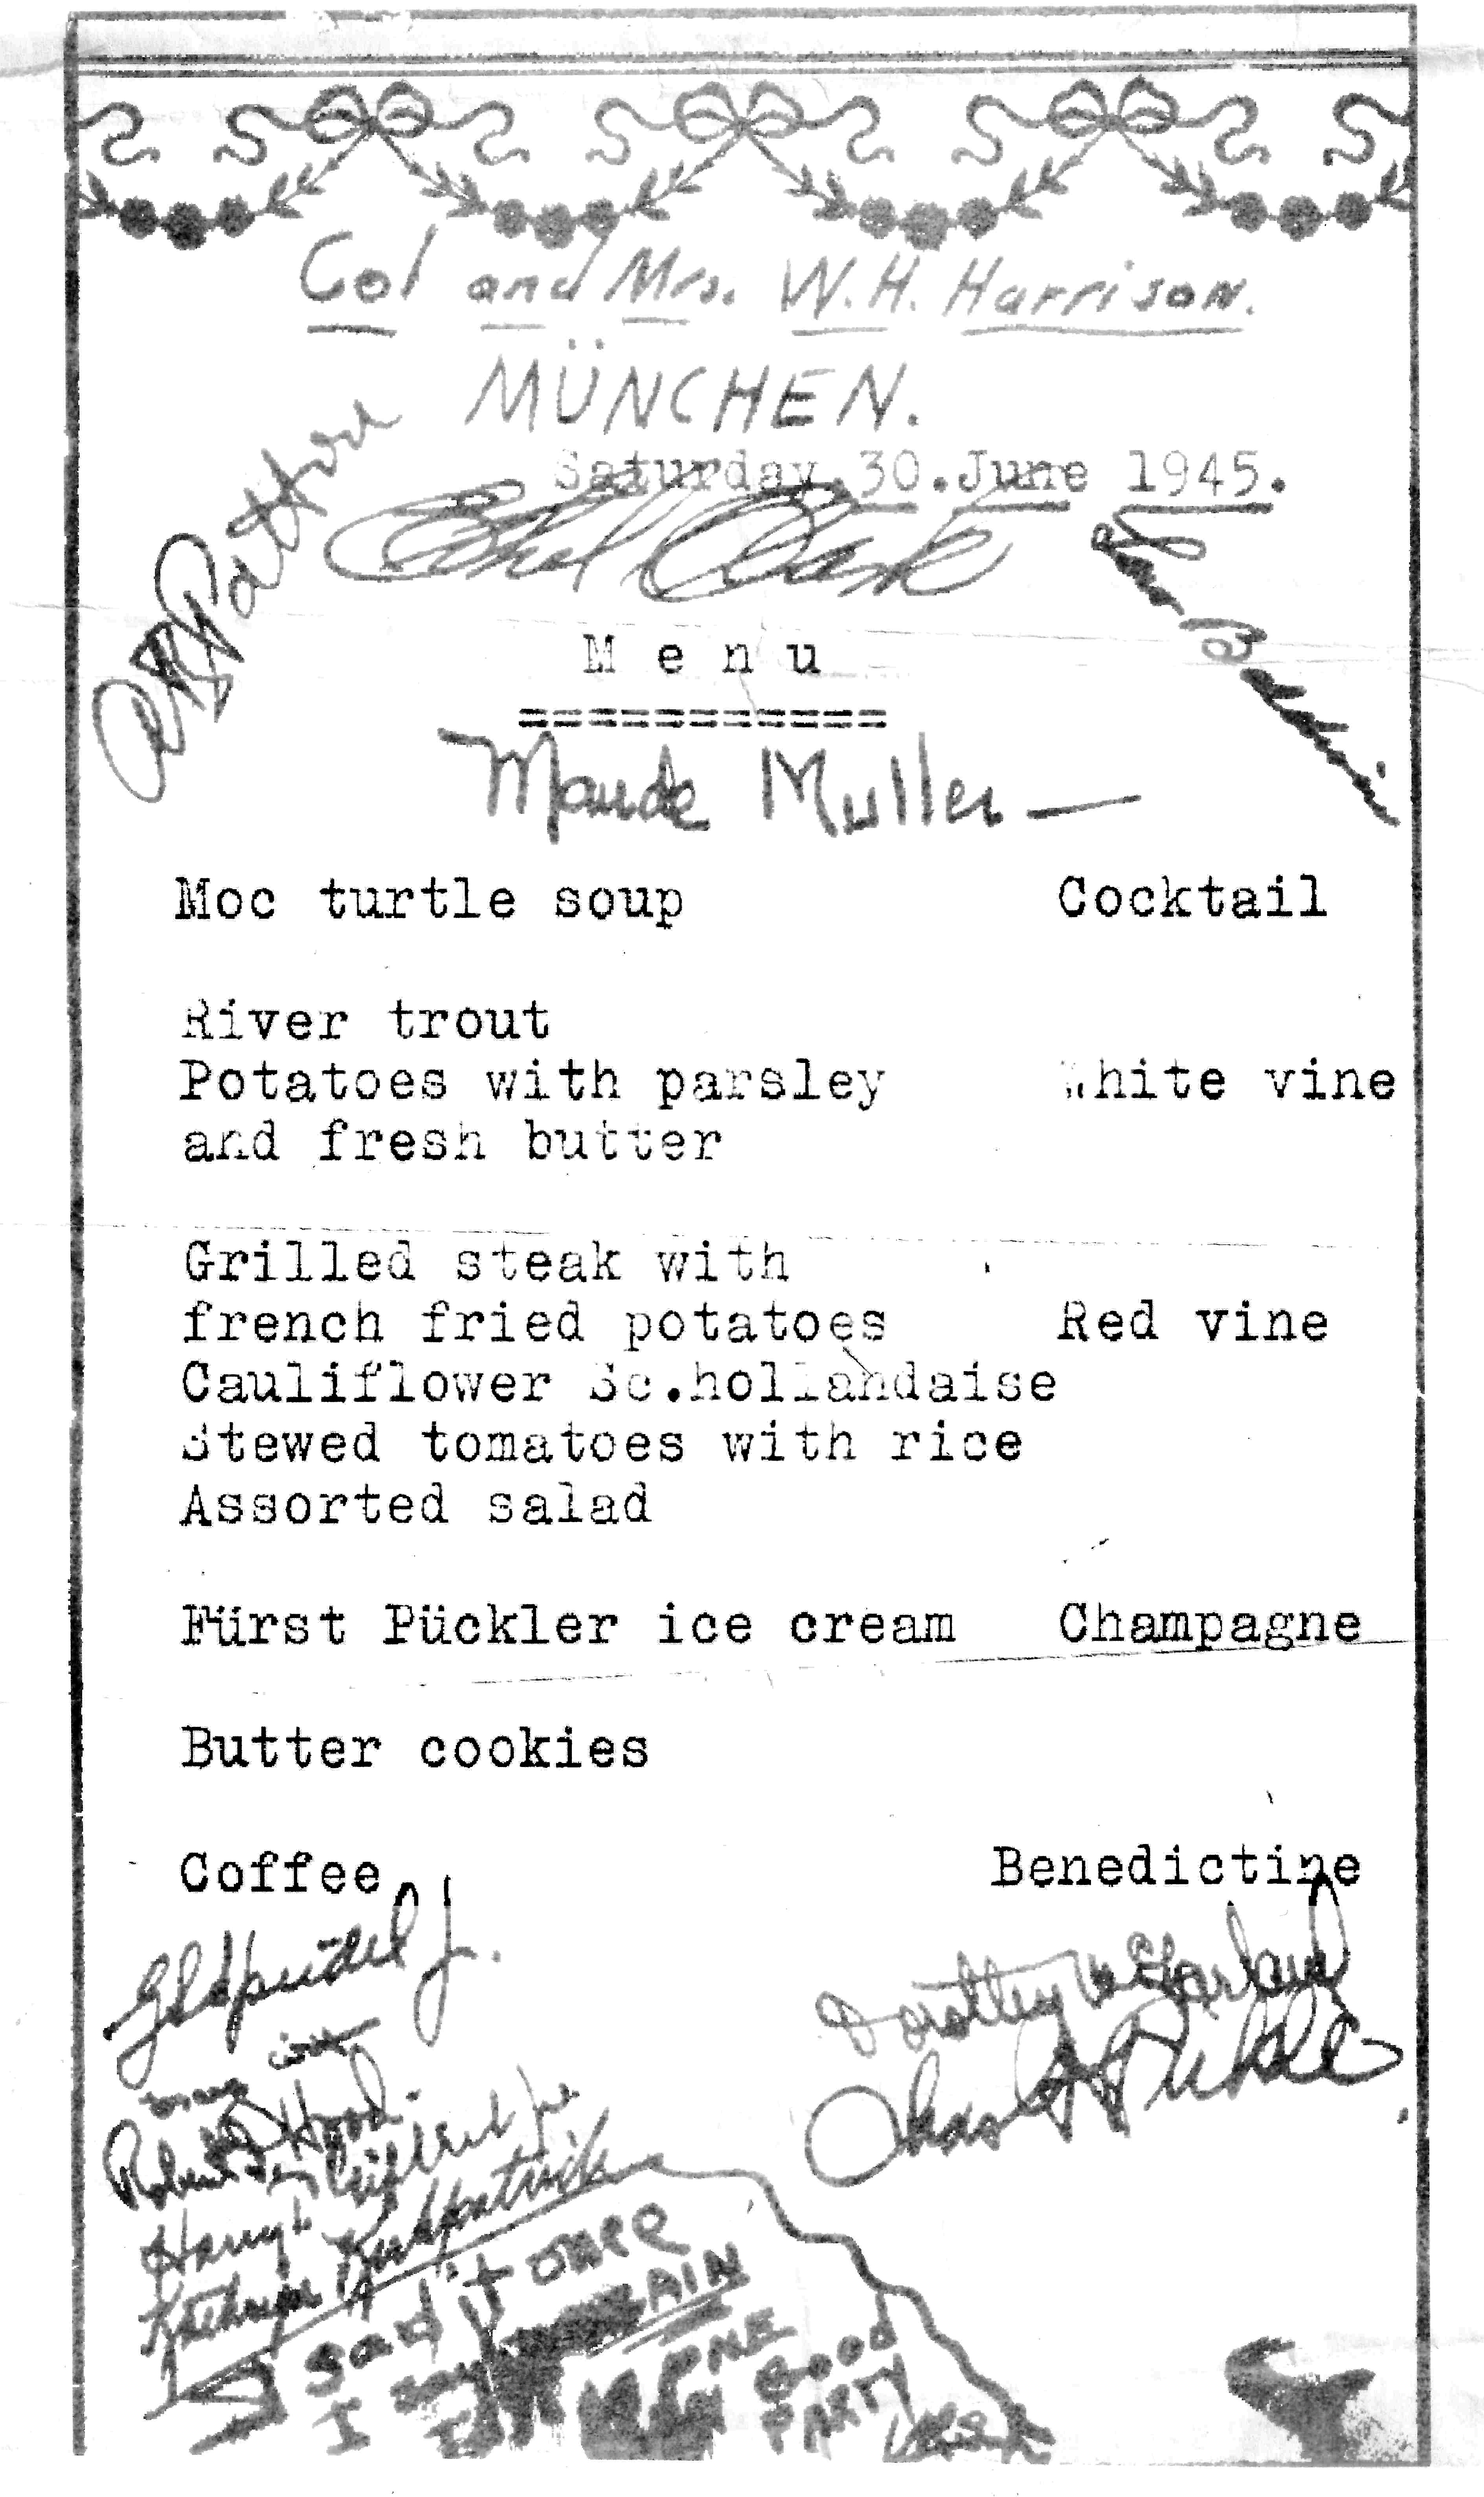 Col and Mrs. W.H. Harrison.
MÜNCHEN.
Saturday,30.June 1945.
Patton
Ethel Clark
M e n u
===========
Maude Muller —
Moc turtle soup Cocktail
River trout
Potatoes with parsley White vine
and fresh butter
Grilled steak with
french fried potatoes Red vine
Cauliflower Sc.hollandaise
Stewed tomatoes with rice
Assorted salad
Fürst Pückler ice cream Champagne
Butter cookies
Coffee Benedictine
Dorothy Garland
Robert Hood
Kathryn Kirkpatrick
I said it once
I AGAIN
ONE
GOOD
PARTY